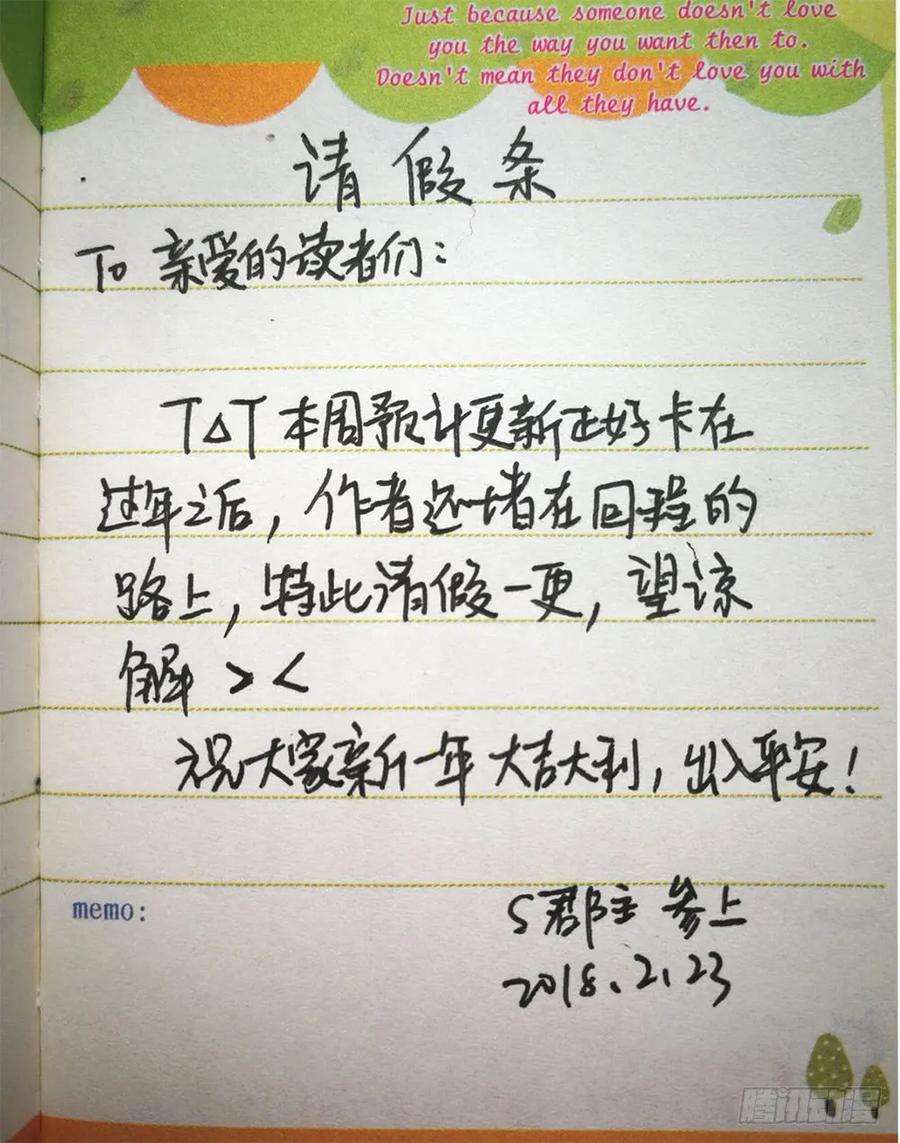 Just because someone doesn't love
you the way you want then to.
Doesn't mean they don't love you with
all they have.
请假条
To 亲爱的读者们:
T△T 本周预计更新正好卡在
过年之后，作者还堵在回程的
路上，特此请假一更，望谅
解 > <
祝大家新一年大吉大利，出入平安！
memo:
S郡主 参上
2018.2.23
腾讯动漫